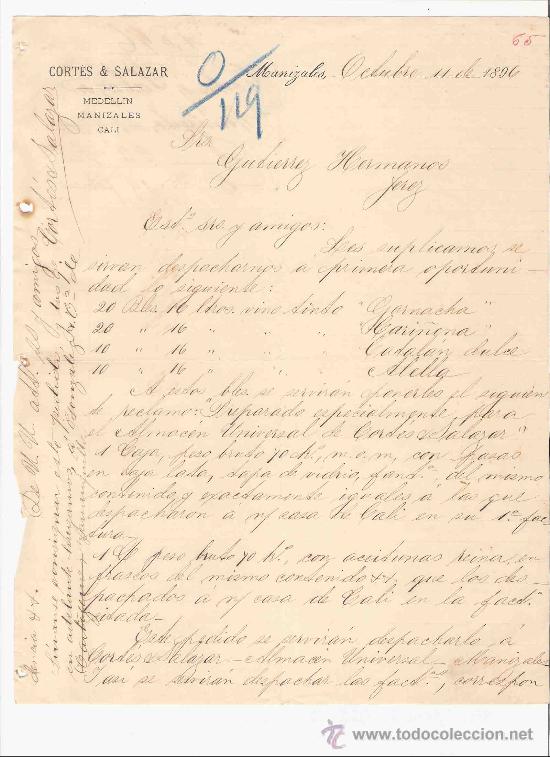 65
CORTÉS & SALAZAR
MEDELLIN
MANIZALES
CALI
0/119
Manizales, Octubre 11 de 1896
Srs.
Gutierrez Hermanos
Jerez
Est.os srs. y amigos:
Les suplicamos se
sirvan despacharnos a primera oportuni-
dad lo siguiente:
20 Bles. 16 ltros. vino tinto "Garnacha"
20 " 16 " " " Cariñena
10 " 16 " " " Catalán dulce
10 " 16 " " " Alella
A estos bles. se serviran ponerles el siguien
te reclamo: "Preparado especialmente para
el Almacén Universal de Cortés & Salazar"
1 Caja, peso bruto 70 k.os, m. o m, con pasas
en caja lata, tapa de vidrio, del mismo
contenido, y exactamente iguales á las que
despacharon á n/ casa de Cali en su 1.a fac
tura.
1 peso bruto 70 k.os, con aceitunas reina, en
frascos del mismo contenido &&, que los des-
pachados á n/ casa de Cali en la fact.
citada.
Este pedido se servirán despacharlo á
Cortés & Salazar - Almacen Universal - Manizales
y asi se serviran despachar las fact.as, correspon
De U. U. y amigos
Cortés & Salazar
todocoleccion
www.todocoleccion.net